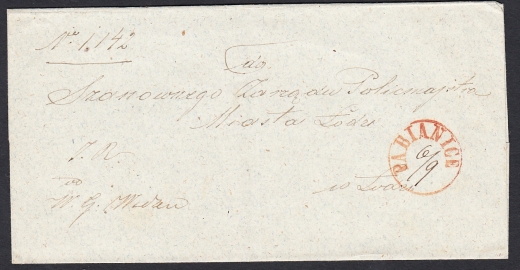 No 1,142
Do
Szanownego Zarządu Policmajstra
Miasta Łodzi
PABIANICE
6/9
w Łodzi